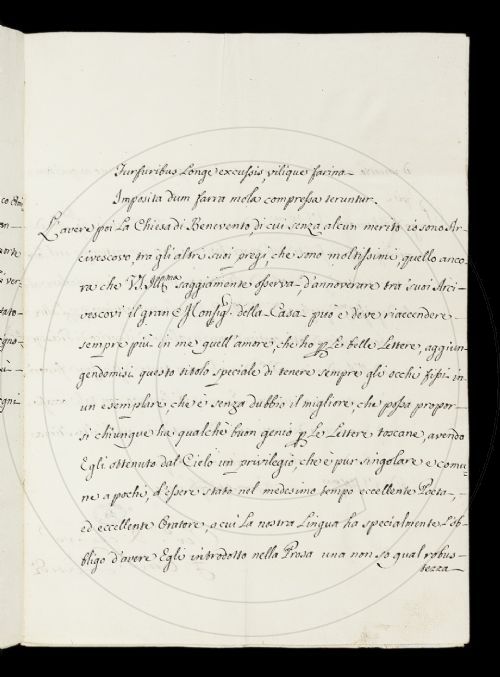 Furfuribus longe excussis, vilique farina
Imposita dum farra mola compressa teruntur.
L'avere poi la Chiesa di Benevento, di cui senza alcun merito io sono Ar-
civescovo, tra gli altri suoi pregi, che sono moltissimi, quello anco-
ra che VS Illma saggiamente osserva, d'annoverare tra' suoi Arci-
vescovi il gran Monsigr. della Casa può e deve riaccendere
sempre più in me quell'amore, che ho p le belle Lettere, aggiun-
gendomisi questo titolo speciale di tenere sempre gli occhi fissi in
un esemplare che è senza dubbio il migliore, che possa propor-
si chiunque ha qualche buon genio p le Lettere toscane, avendo
Egli ottenuto dal Cielo un privilegio, che è pur singolare e comu-
ne a pochi, d'essere stato nel medesimo tempo eccellente Poeta,
ed eccellente Oratore, a cui la nostra Lingua ha specialmente l'ob-
bligo d'avere Egli introdotto nella Prosa una non so qual robus-
tezza